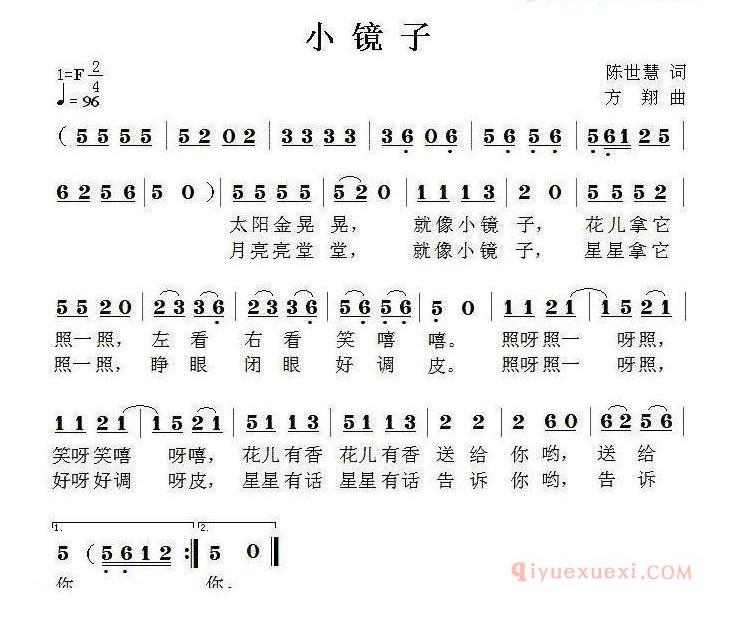 小镜子
1=F 2/4
♩=96
陈世慧 词
方 翔 曲
( 5 5 5 5 | 5 2 0 2 | 3 3 3 3 | 3 6 0 6 | 5 6 5 6 | 5 6 1 2 5 |
6 2 5 6 | 5 0 ) | 5 5 5 5 | 5 2 0 | 1 1 1 3 | 2 0 | 5 5 5 2 |
太阳金晃 晃, 就像小镜 子, 花儿拿它
月亮亮堂 堂, 就像小镜 子, 星星拿它
5 5 2 0 | 2 3 3 6 | 2 3 3 6 | 5 6 5 6 | 5 0 | 1 1 2 1 | 1 5 2 1 |
照一照, 左看 右看 笑嘻 嘻。 照呀照一 呀照,
照一照, 睁眼 闭眼 好调 皮。 照呀照一 呀照,
1 1 2 1 | 1 5 2 1 | 5 1 1 3 | 5 1 1 3 | 2 2 | 2 6 0 | 6 2 5 6 |
笑呀笑嘻 呀嘻, 花儿有香 花儿有香 送给 你哟, 送给
好呀好调 呀皮, 星星有话 星星有话 告诉 你哟, 告诉
1. 2.
5 ( 5 6 1 2 :‖ 5 0 ‖
你 你。
qiyuexuexi.COM